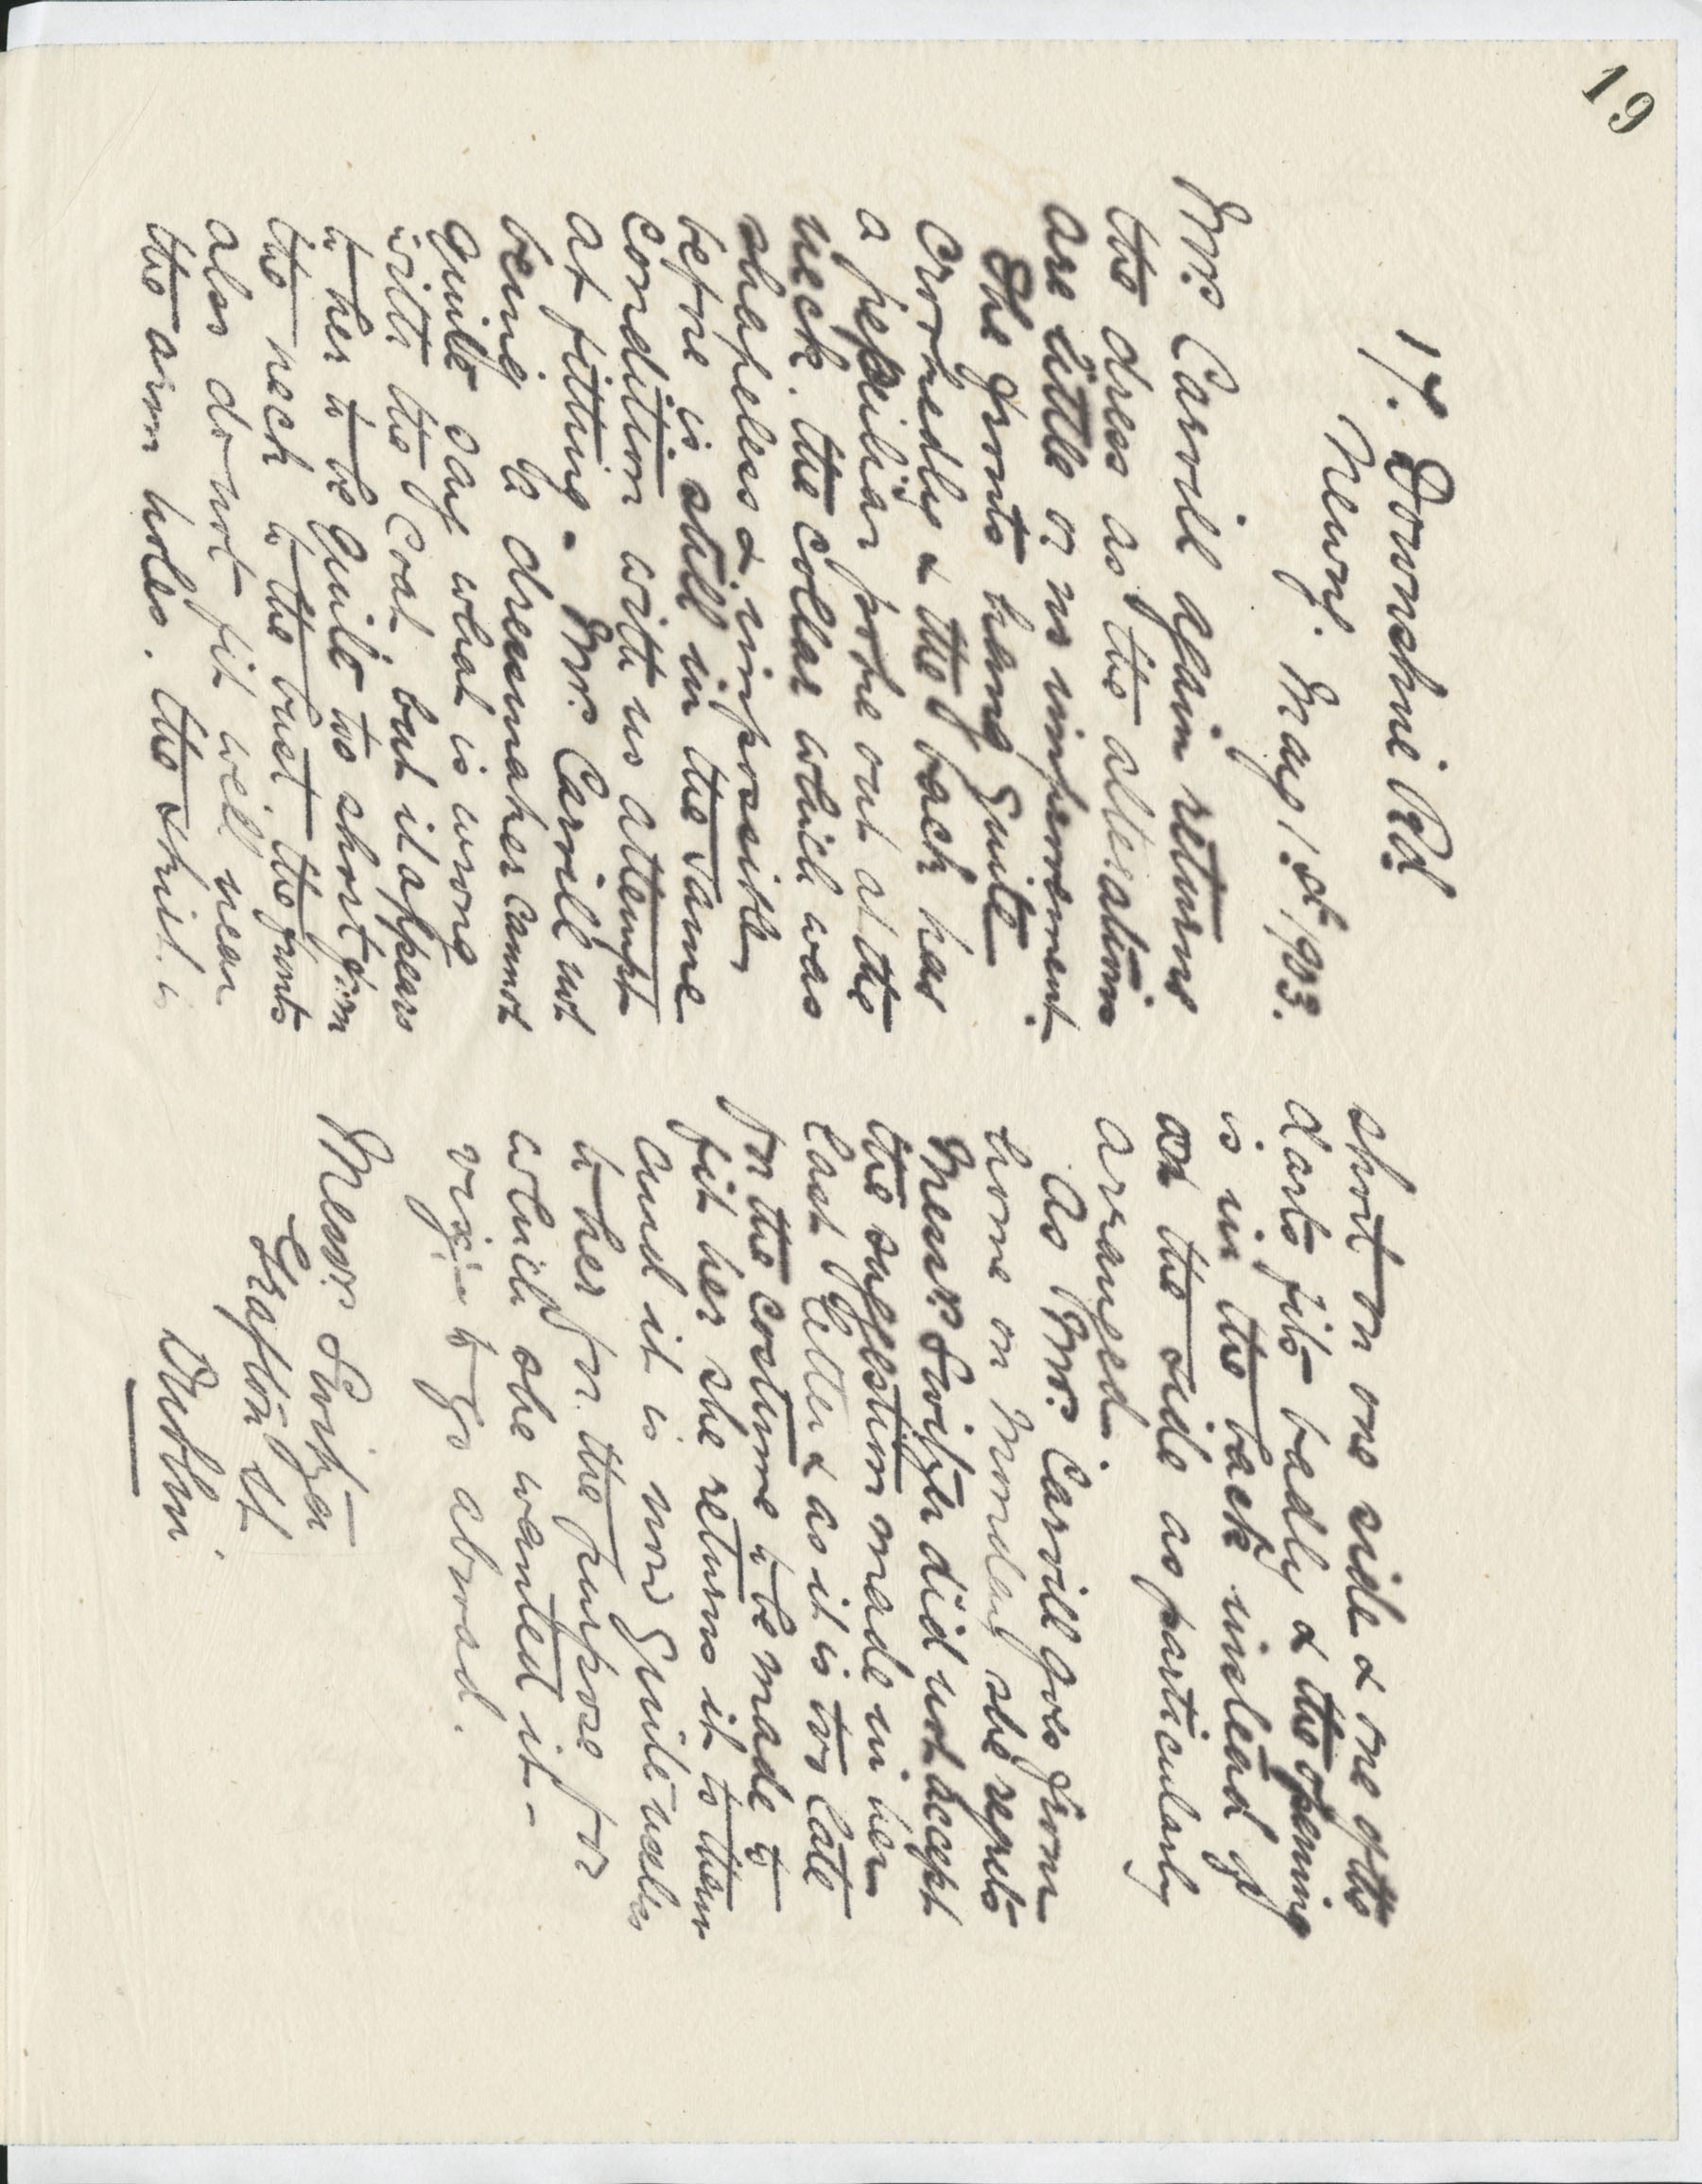 19
17. Downshire Rd
Newry. May 1st 1903.
Mrs Carvill again returns
the dress as the alterations
are little or no improvement.
The fronts hang quite
crookedly & the back has
a peculiar poke out at the
neck. the collar which was
shapeless & impossible
before is still in the same
condition with no attempt
at fitting - Mrs Carvill not
being a dressmaker cannot
quite say what is wrong
with the coat, but it appears
to her to be quite too short from
the neck to the bust. the fronts
also do not fit well near
the arm holes. the skirt is
short on one side & one of the
darts fits badly & the opening
is in the back instead of
on the side as particularly
arranged.
As Mrs Carvill goes from
home on Monday she regrets
Messrs Switzer did not accept
the suggestion made in her
last letter & as it is too late
for the costume to be made to
fit her she returns it to them
and it is now quite useless
to her for the purpose for
which she wanted it -
viz:- to go abroad.
Messrs Switzer
Grafton St
Dublin.